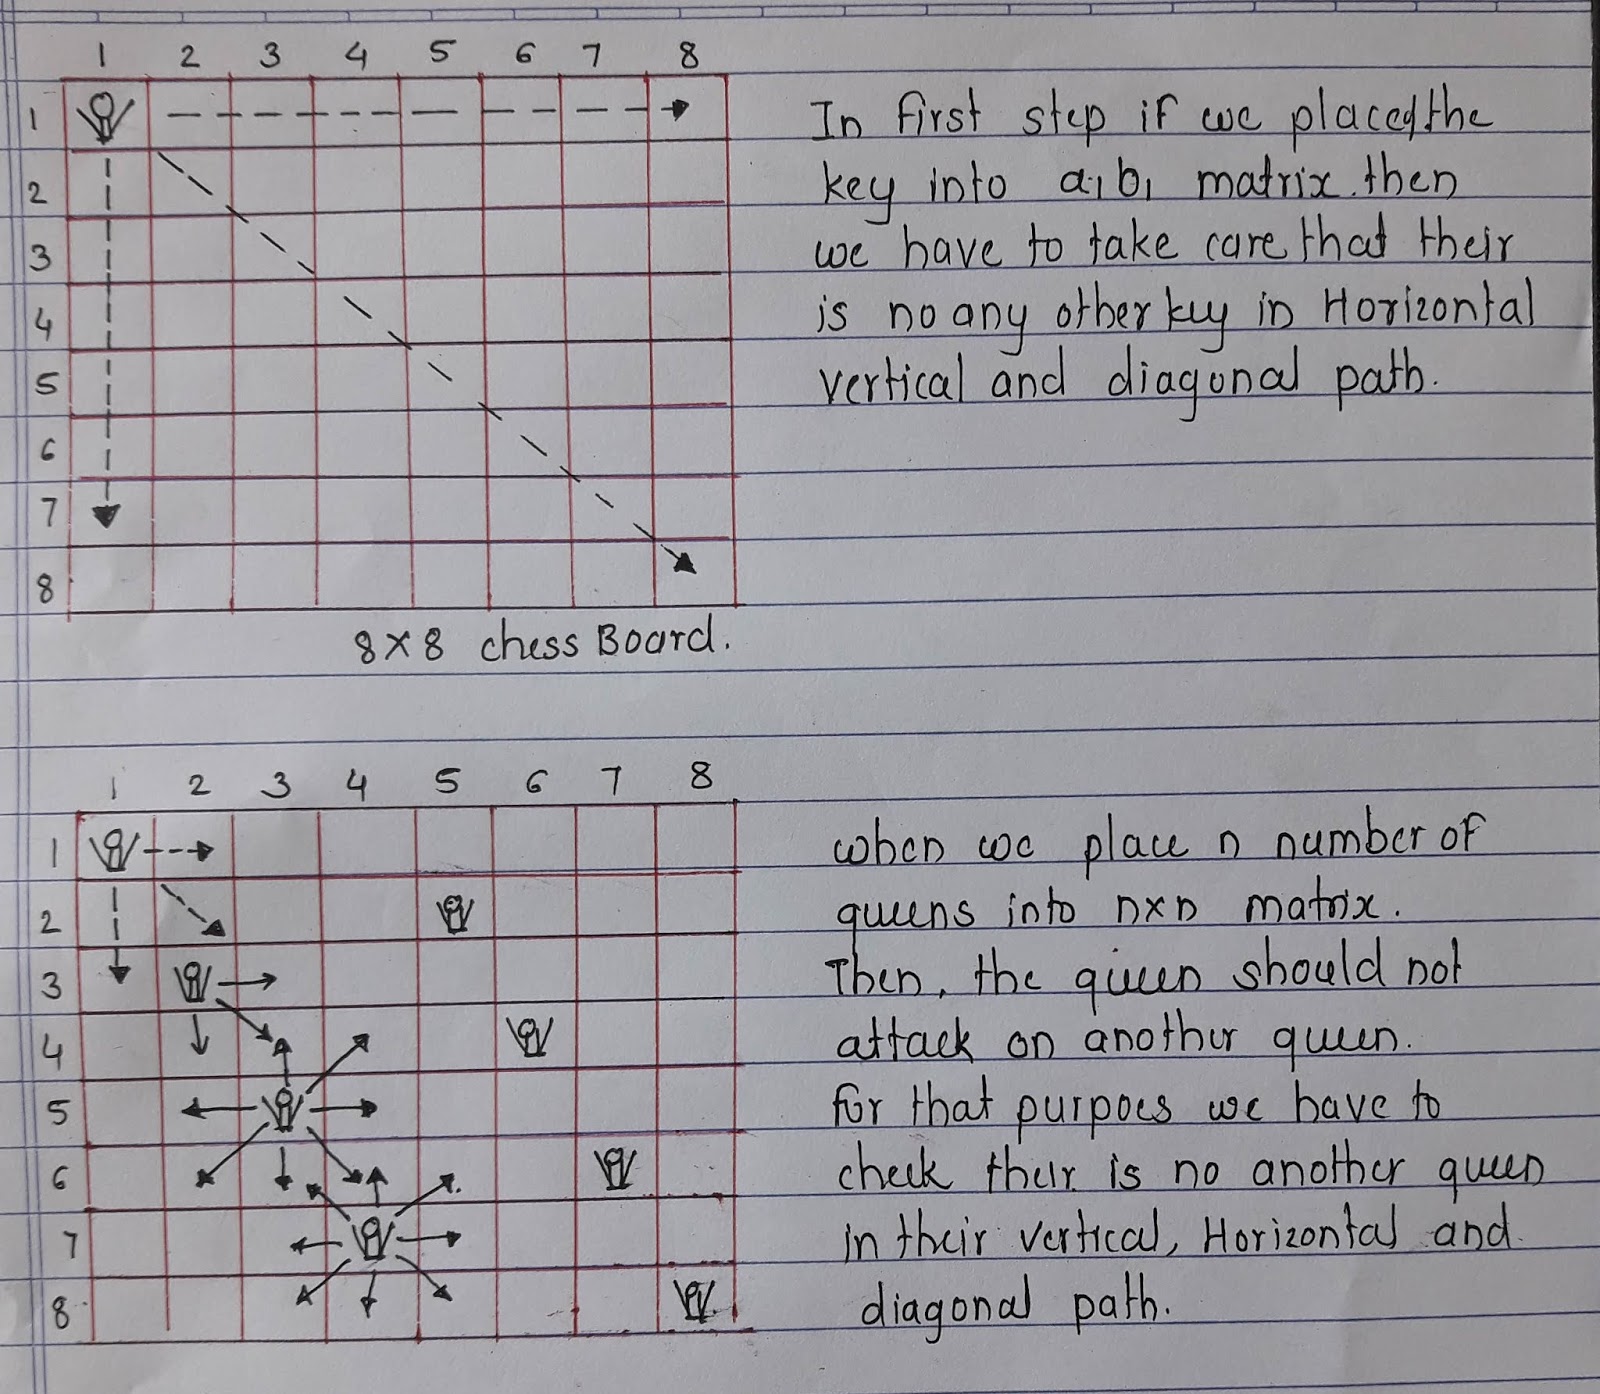 1 2 3 4 5 6 7 8
1
2
3
4
5
6
7
8
8×8 chess Board.
In first step if we placed the
key into a1b1 matrix then
we have to take care that their
is no any other key in Horizontal
vertical and diagonal path.
1 2 3 4 5 6 7 8
1
2
3
4
5
6
7
8
when we place n number of
queens into n×n matrix.
Then, the queen should not
attack on another queen.
for that purpoes we have to
check their is no another queen
in their vertical, Horizontal and
diagonal path.